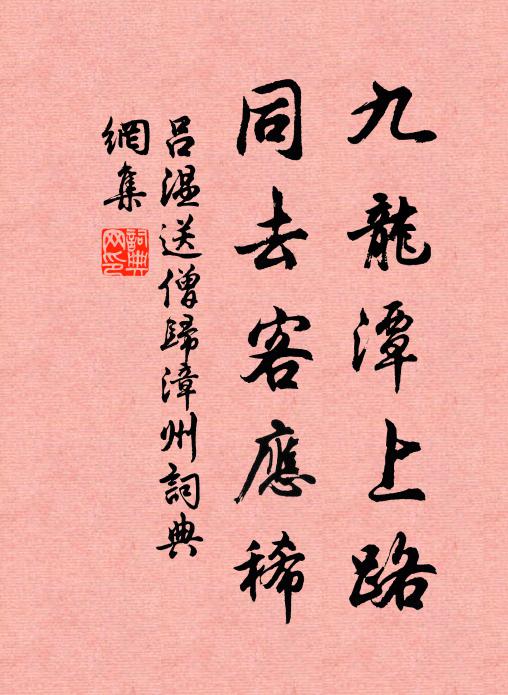 九龍潭上路
同去客應稀
呂溫送僧歸漳州詞典
網集
詞典網印